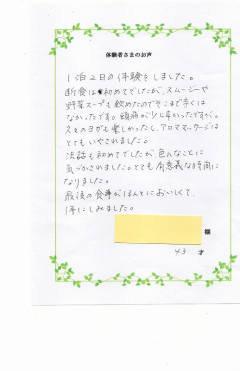 体験者さまのお声
1泊2日の体験をしました。
断食は初めてでしたが、スムージーや
野菜スープも飲めたのでそこまで辛くは
なかったです。頭痛が少し辛かったですが。
久々のヨガも楽しかったし、アロママッサージは
とてもいやされました。
法話も初めてでしたが色んなことに
気づかされました。とても有意義な時間に
なりました。
最後の食事がほんとにおいしくて、
体にしみました。
様
43 才